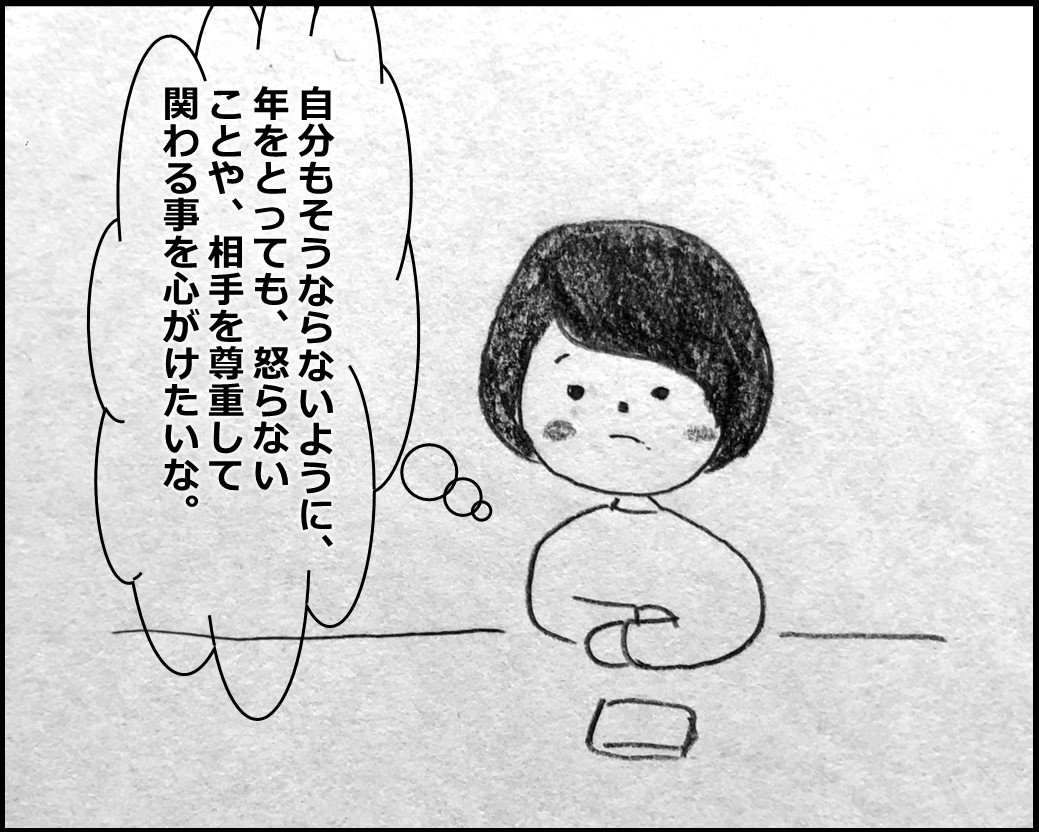 自分もそうならないように、
年をとっても、怒らない
ことや、相手を尊重して
関わる事を心がけたいな。